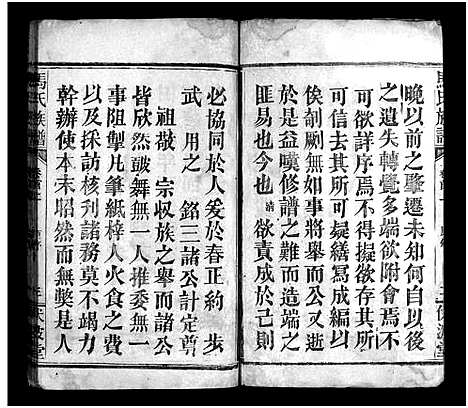 馬氏族譜
晚以前之肇遷未知何自以後
之遺失轉覺多端欲附會焉不
可欲詳焉不得擬欲存其所
可信去其所可疑繕寫成編以
俟剞劂無如事將舉而公又逝
於是益嘆修譜之難而造端之
匪易也今也 請 欲責成於己
必協同於人爰於春正約 步
武 用之 銘三諸公計定尊
祖敬 宗收族之舉而諸公
皆欣然鼓舞無一人推委無一
事阻掣凡筆紙梓人火食之費
以及採訪校刊諸務莫不竭力
幹辦使本末昭然而無弊是人
馬氏族譜
伏波堂